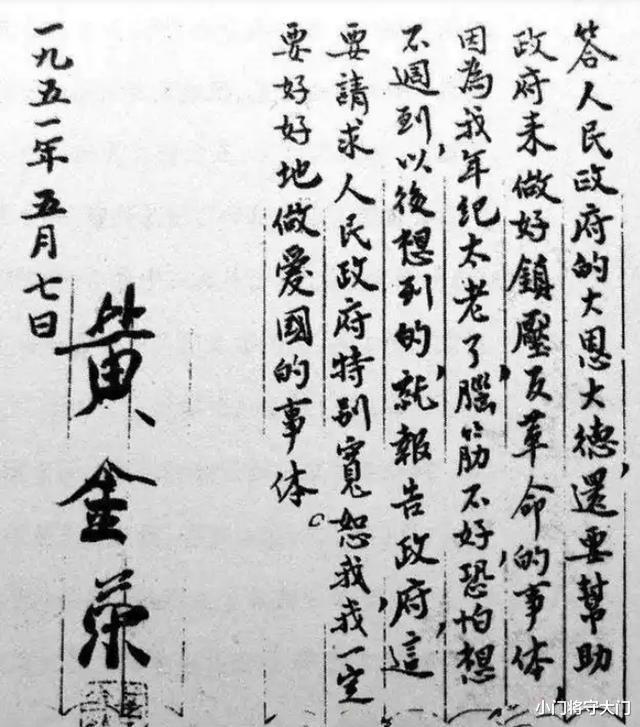 答人民政府的大恩大德，還要幫助
政府来做好鎮壓反革命的事体，
因為我年纪太老了，腦筋不好，恐怕想
不週到，以後想到的，就報告政府，這
要請求人民政府特别寬恕我，我一定
要好好地做爱國的事体。
一九五一年五月七日
黄金荣
小门将守大门